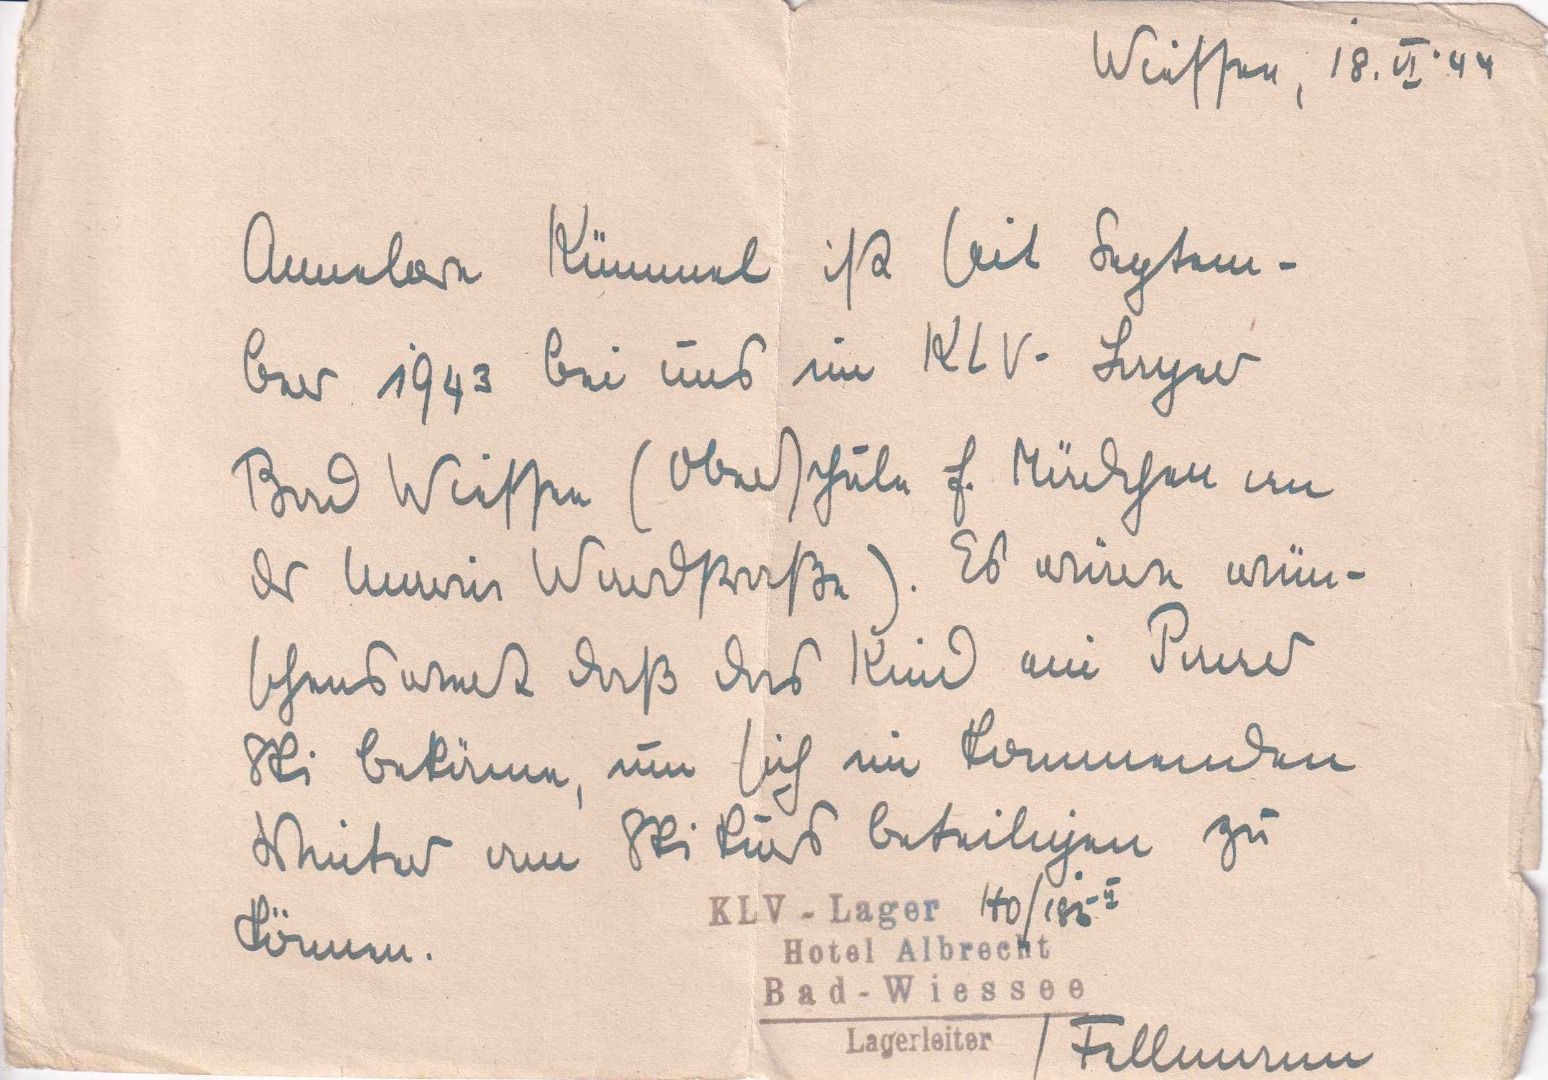 Wiessee, 18. VI. 44
Annelore Kümmel ist seit Septem-
ber 1943 bei uns im KLV- Lager
Bad Wiessee (Oberschule f. Mädchen an
der Wardstraße). Es wäre wün-
schenswert daß das Kind ein Paar
Ski bekäme, um sich im kommenden
Winter am Skikurs beteiligen zu
können.
KLV - Lager Ho/185 II
Hotel Albrecht
Bad-Wiessee
Lagerleiter / Fellmann